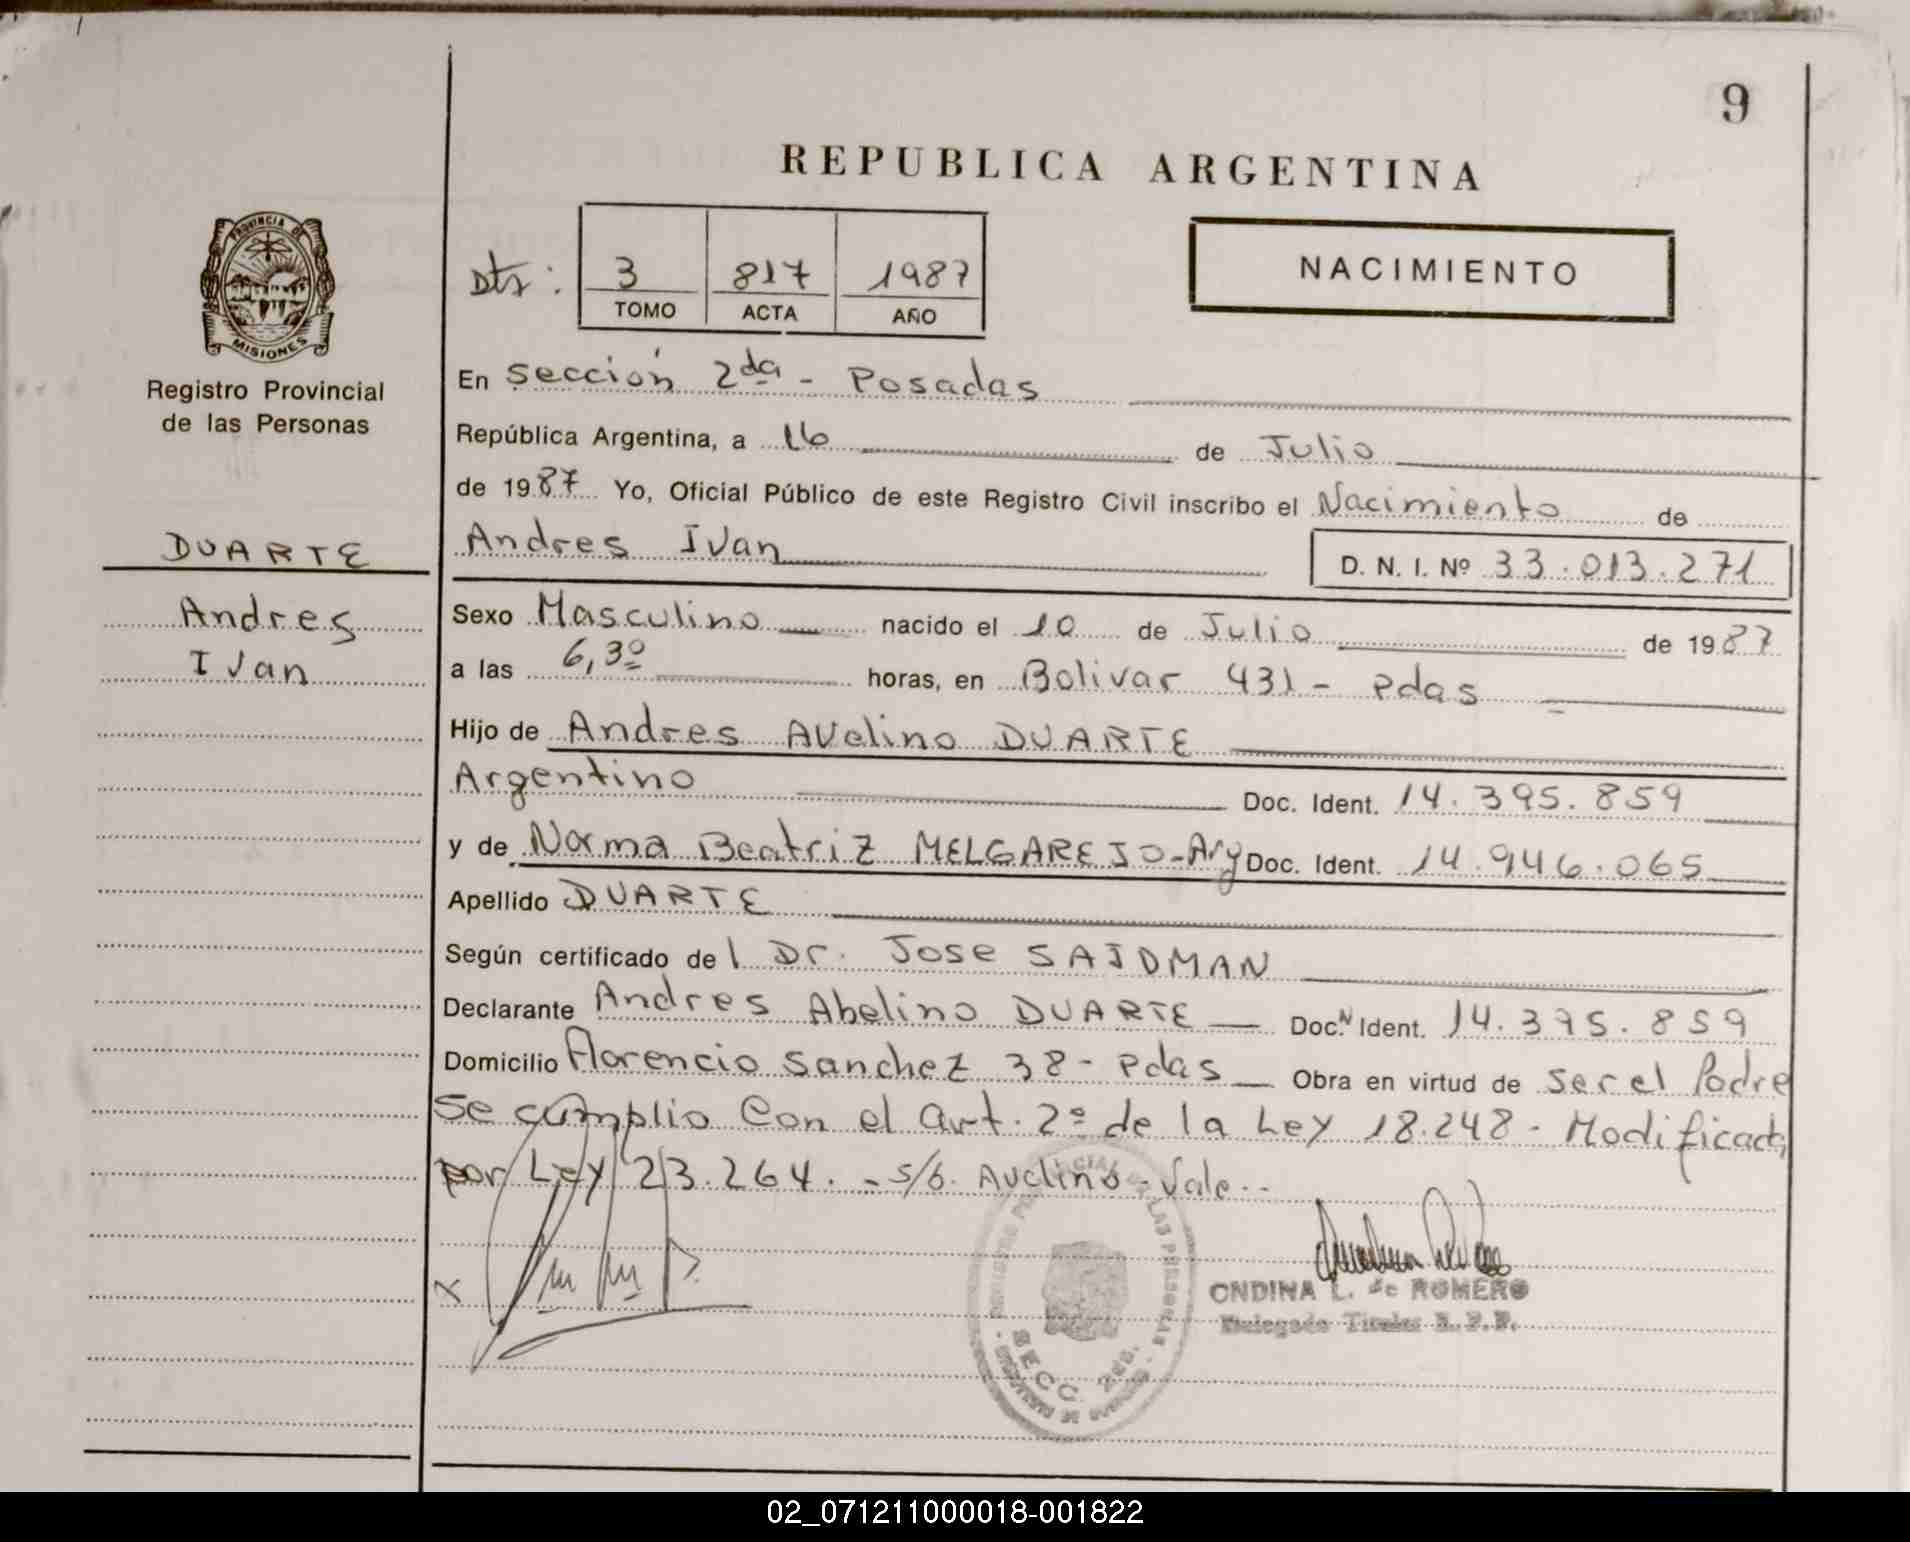 9
REPUBLICA ARGENTINA
PROVINCIA DE
MISIONES
Registro Provincial
de las Personas
3 817 1987
TOMO ACTA AÑO
NACIMIENTO
DUARTE
Andres
Ivan
En Sección 2da - Posadas
República Argentina, a 16 de Julio
de 1987 Yo, Oficial Público de este Registro Civil inscribo el Nacimiento de
Andres Ivan D. N. I. Nº 33.013.271
Sexo Masculino nacido el 10 de Julio de 1987
a las 6,30 horas, en Bolivar 431 - Pdas
Hijo de Andres Avelino DUARTE
Argentino Doc. Ident. 14.395.859
y de Norma Beatriz MELGAREJO - Arg Doc. Ident. 14.946.065
Apellido DUARTE
Según certificado del Dr. Jose SAIDMAN
Declarante Andres Abelino DUARTE Doc. Ident. 14.395.859
Domicilio Florencio Sanchez 38 - Pdas Obra en virtud de ser el Padre
Se cumplio Con el art. 2º de la Ley 18.248 - Modificada
por Ley 23.264. - s/b. Avelino - Vale. -
ONDINA L. de ROMERO
Delegado Titular R. P. P.
SECC. 2da.
02_071211000018-001822